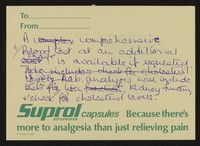 To
From
A comprehensive
blood test at an additional
is available if requested
includes check for cholesterol
Lab. analysis will include
tests for liver function kidney function
+ check for cholesterol levels.
Suprol capsules Because there's
more to analgesia than just relieving pain